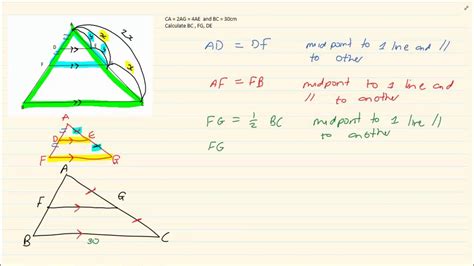 CA = 2AG = 4AE and BC = 30cm
Calculate BC , FG, DE
2x
x
x
AD = DF midpoint to 1 line and //
to other
AF = FB midpoint to 1 line and
// to another
FG = 1/2 BC midpoint to 1 line //
to another
FG
A
D
E
F
G
A
F
G
B
30
C